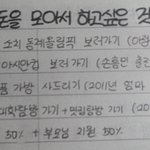 돈을 모아서 하고싶은 것
소치 동계올림픽 보러가기 (아빠
아시안컵 보러가기 (손흥민
가방 사드리기 (2011년 엄마
대학탐방 가기 + 맛집탐방 가기 (20
50% + 부모님 지원 50%